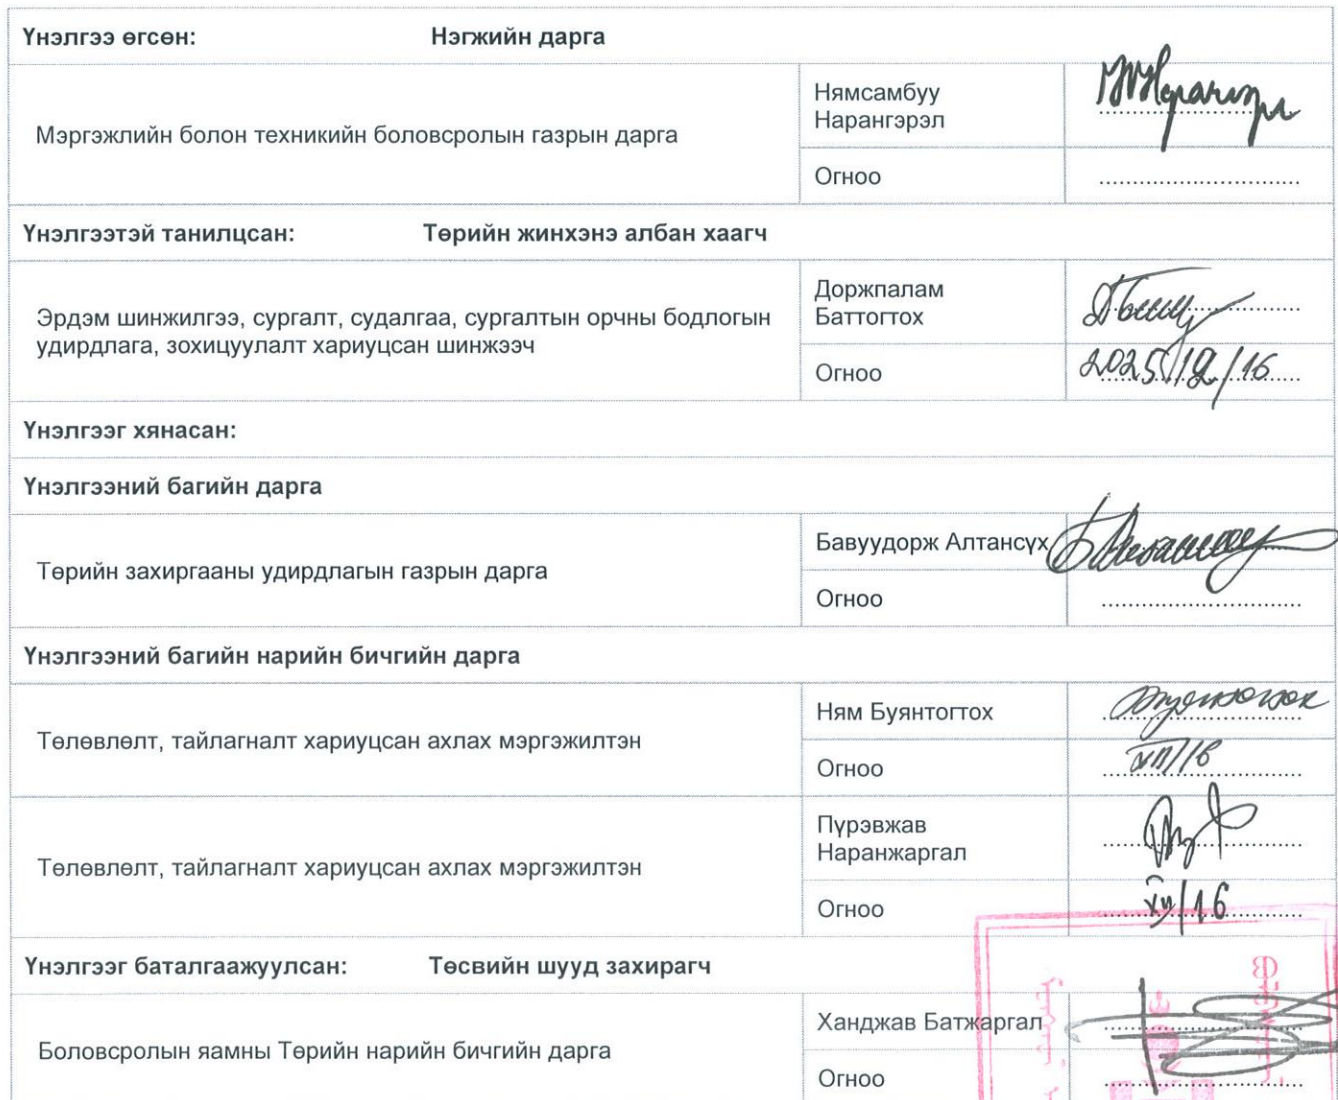 Үнэлгээ өгсөн: Нэгжийн дарга
Мэргэжлийн болон техникийн боловсролын газрын дарга
Нямсамбуу
Нарангэрэл
Огноо
Үнэлгээтэй танилцсан: Төрийн жинхэнэ албан хаагч
Эрдэм шинжилгээ, сургалт, судалгаа, сургалтын орчны бодлогын
удирдлага, зохицуулалт хариуцсан шинжээч
Доржпалам
Баттогтох
Огноо
2025/12/16
Үнэлгээг хянасан:
Үнэлгээний багийн дарга
Төрийн захиргааны удирдлагын газрын дарга
Бавуудорж Алтансүх
Огноо
Үнэлгээний багийн нарийн бичгийн дарга
Төлөвлөлт, тайлагналт хариуцсан ахлах мэргэжилтэн
Ням Буянтогтох
Огноо
XII/16
Төлөвлөлт, тайлагналт хариуцсан ахлах мэргэжилтэн
Пүрэвжав
Наранжаргал
Огноо
XII/16
Үнэлгээг баталгаажуулсан: Төсвийн шууд захирагч
Боловсролын яамны Төрийн нарийн бичгийн дарга
Ханджав Батжаргал
Огноо